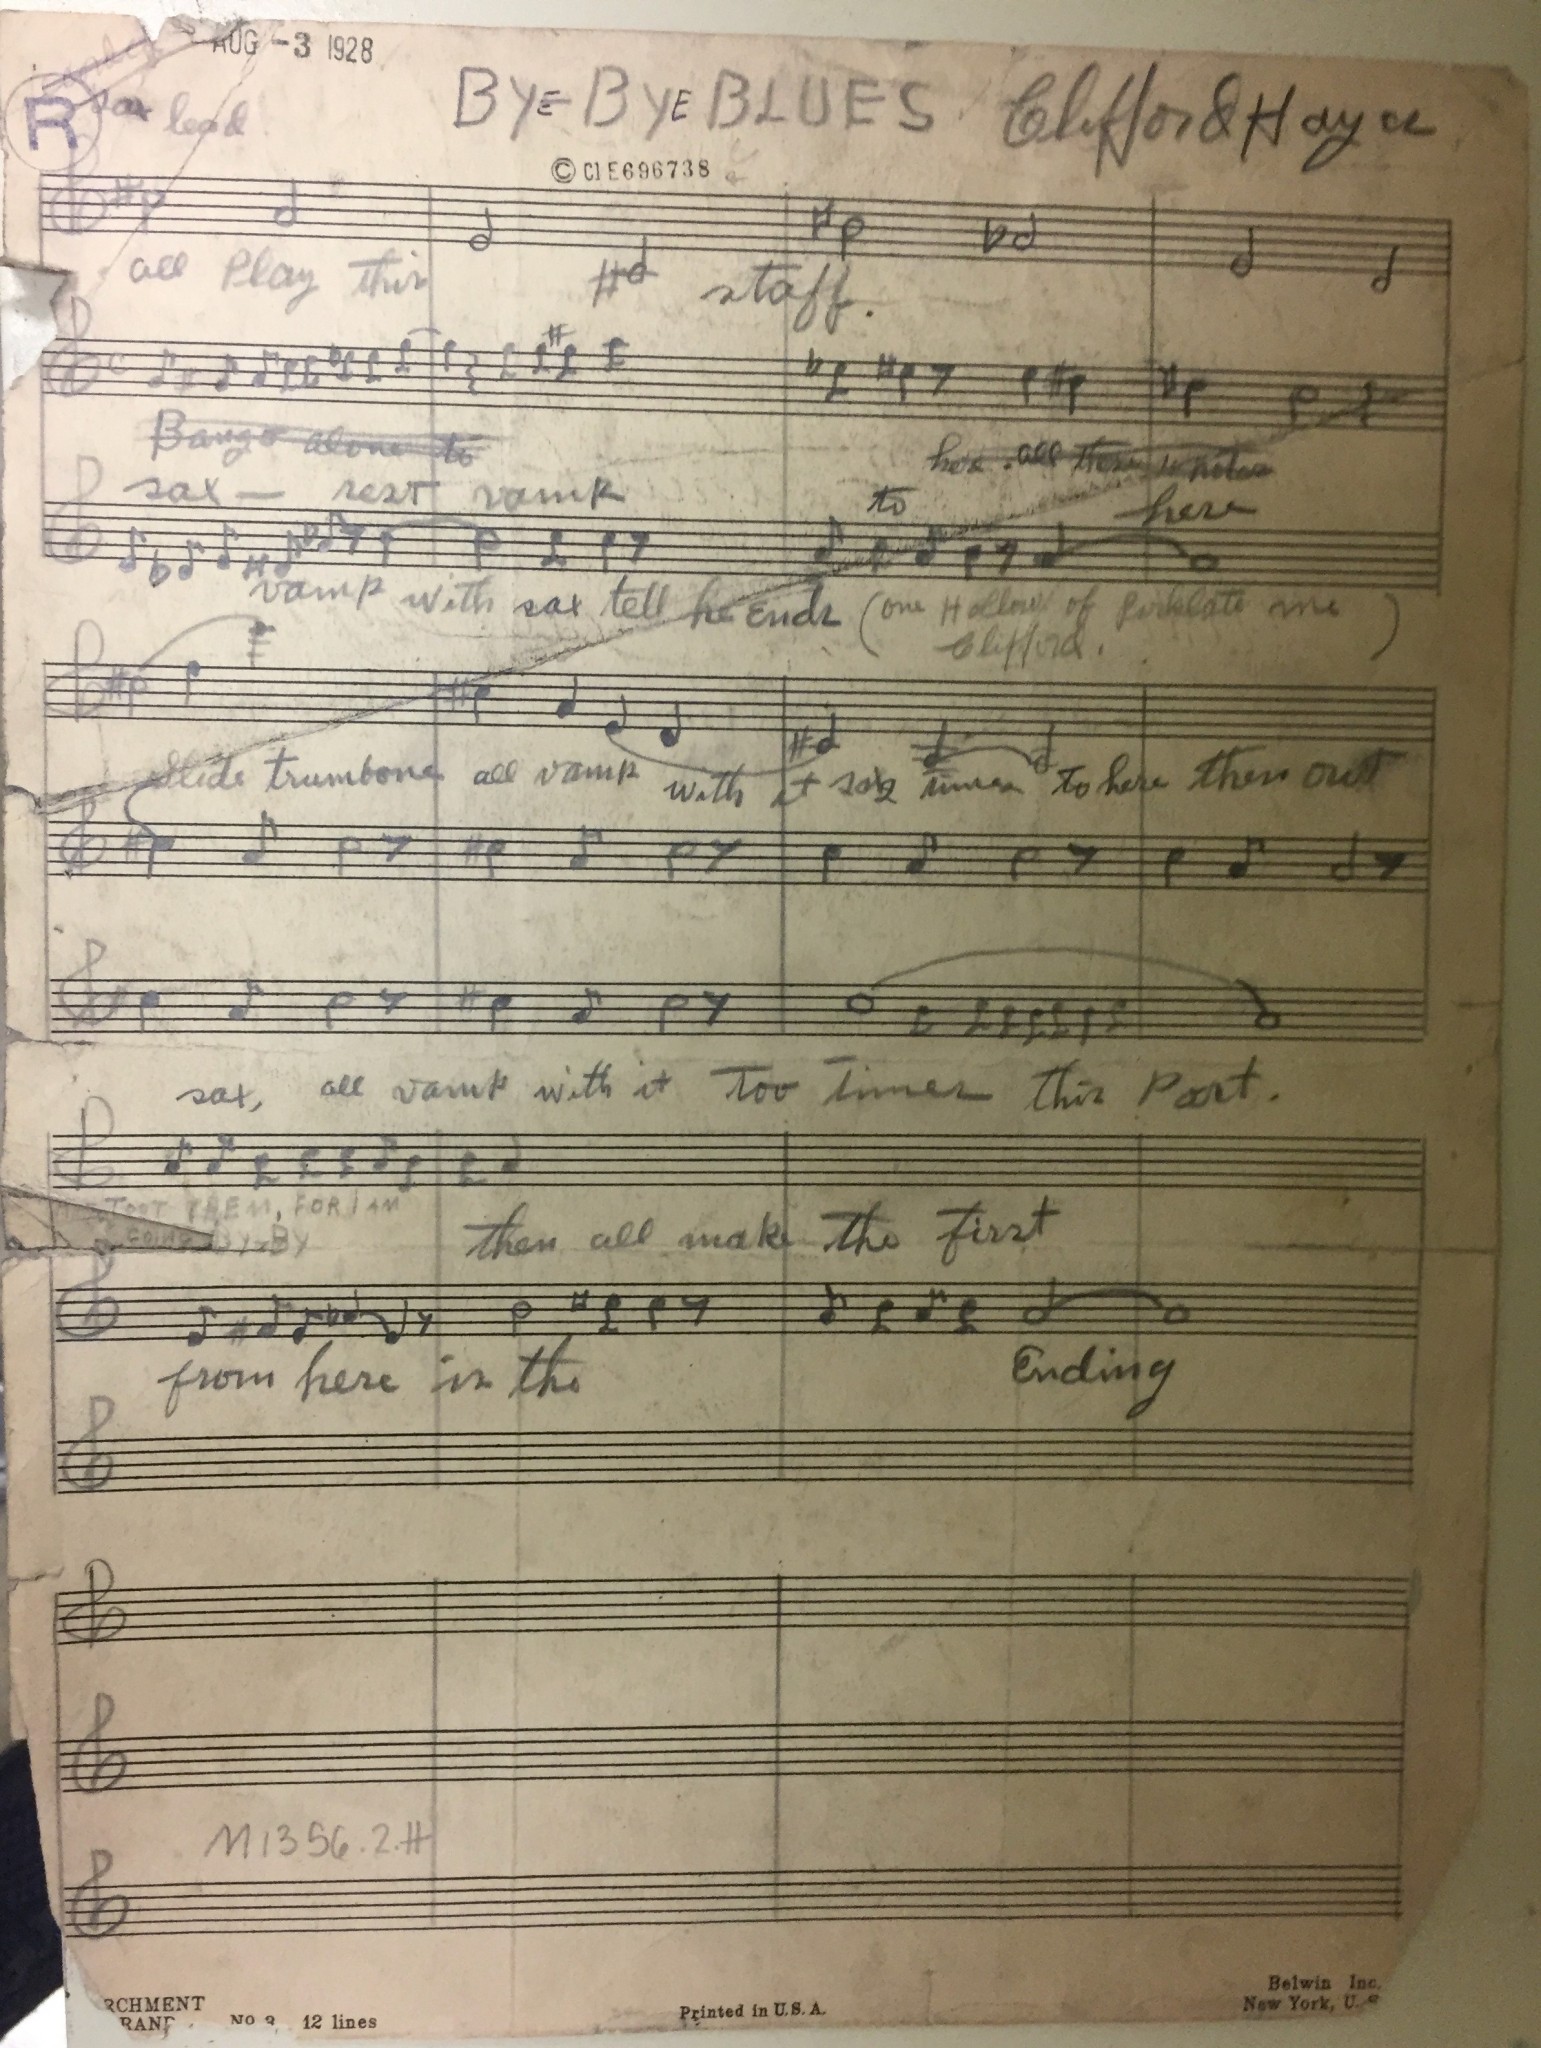 AUG -3 1928
R sax lead
BYE BYE BLUES Clifford Hayes
© CIE696738
all Play this staff.
Bango alone to
her. all these notes
sax — rest vamp to here
vamp with sax tell he Ends (one Hollow of me
Clifford. )
slide trumbone all vamp with it six times to here then out
sax, all vamp with it Too Times this Part.
TOOT THEM, FOR I AM
GOING BY-BY
then all make the first
from here is the Ending
M1356.2.H
RCHMENT
RAND No 12 lines
Printed in U.S.A.
Belwin Inc.
New York, U.S